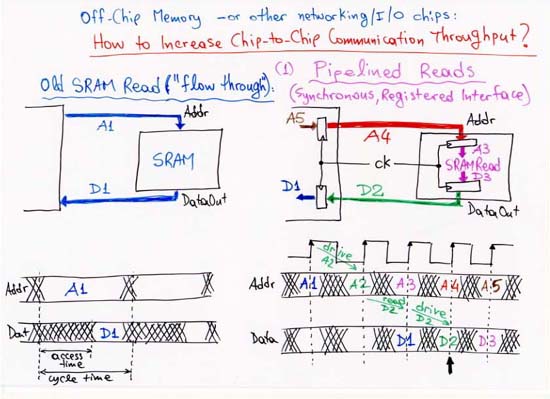 Off-Chip Memory – or other networking/I/O chips:
How to Increase Chip-to-Chip Communication Throughput?
Old SRAM Read ("flow through"):
(1) Pipelined Reads
(Synchronous, Registered Interface)
Addr
A1
SRAM
D1
DataOut
A5
A4
Addr
A3
SRAM Read
D3
ck
D1
D2
DataOut
drive
A2
Addr
A1
Addr
A1
A2
A3
A4
A5
read
D2
drive
D2
Dout
D1
Data
D1
D2
D3
access
time
cycle time